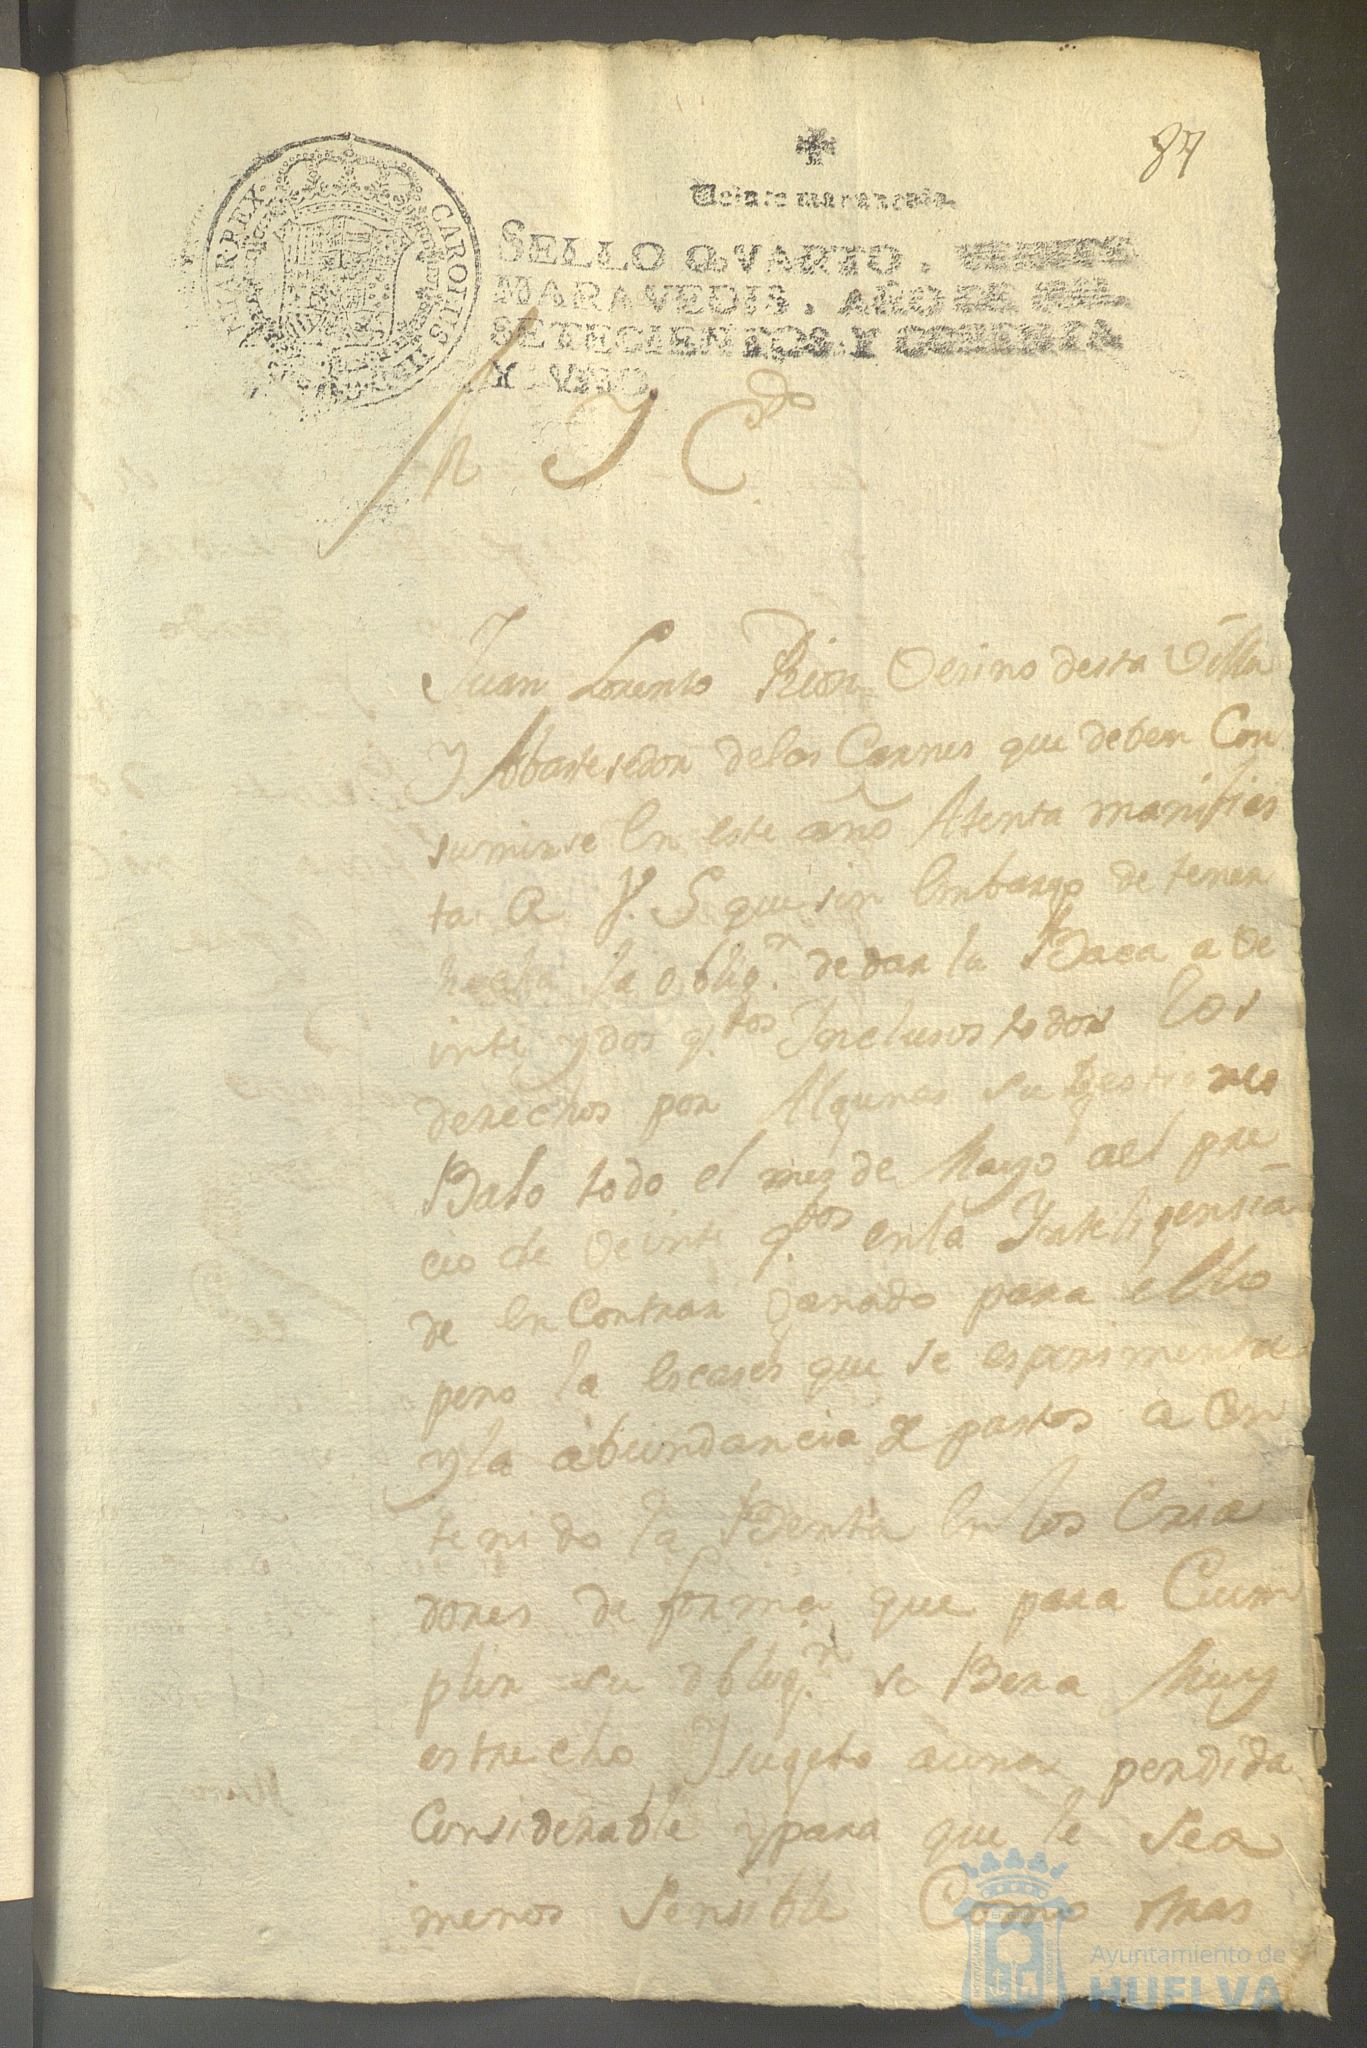 87
Veinte maravedis.
SELLO QVARTO, VEINTE
MARAVEDIS, AÑO DE MIL
SETECIENTOS Y OCHENTA
Y VNO
CAROLUS III
HISPANIAR REX.
Y C.do
Juan Lorento Rion Vesino desta Villa
y Abastesedor delas Carnes que deben Con
sumirse en este año Atenta manifies
ta A V. S que sin Embargo de tener
hecha la oblig.n de dar la Baca a Ve
inte y dos q.tos Inclusos todos los
derechos por Algunas sugestiones
Bajo todo el mes de Mayo ael pre
cio de veinte q.tos en la Inteligensia
de en Contrar Ganado para ello
pero la escases que se esperimenta
y la abundancia de pastos a Con
tenido la Benta en los Cria
dores de forma que para Cum
plir su oblig.n se Bera Muy
estrecho Y sugeto a una perdida
Considerable y para que le sea
menos sensible Como mas
Ayuntamiento de
HUELVA